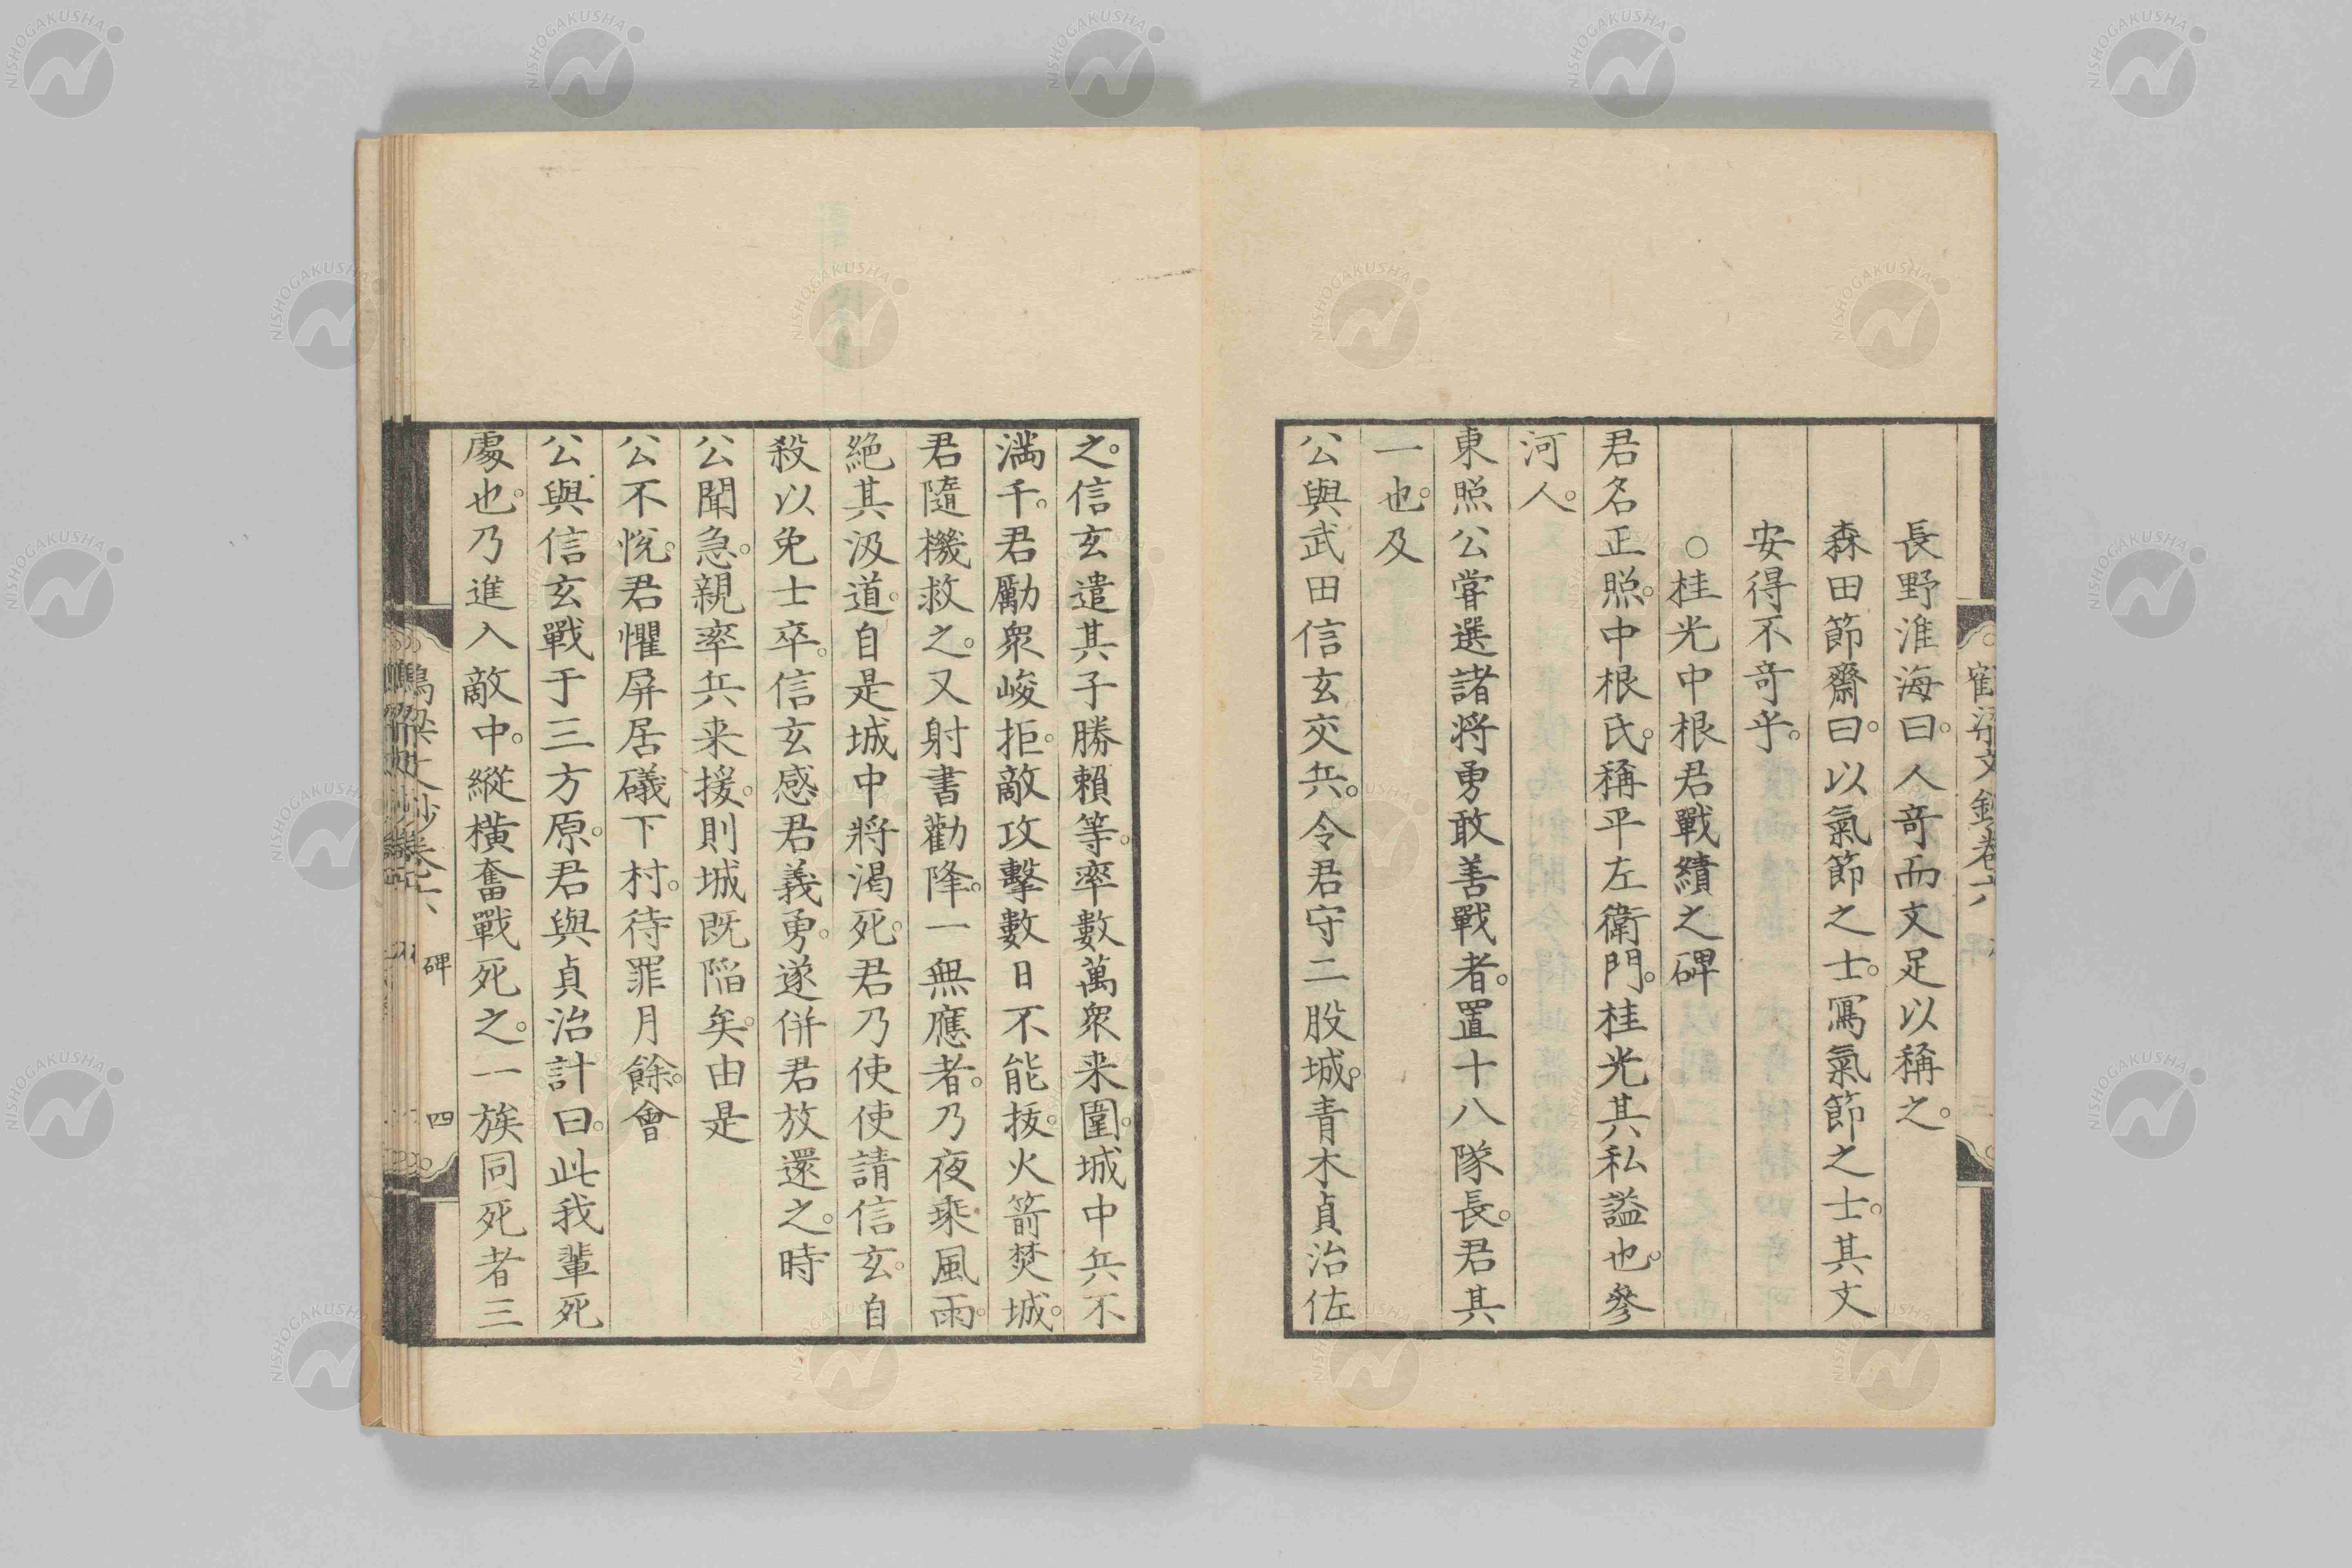 長野淮海曰。人奇而文足以稱之。
森田節齋曰。以氣節之士。寫氣節之士。其文
安得不奇乎。
○桂光中根君戰績之碑
君名正照。中根氏。稱平左衛門。桂光其私謚也。參
河人。
東照公甞選諸將勇敢善戰者。置十八隊長。君其
一也。及
公與武田信玄交兵。令君守二股城。青木貞治佐
之。信玄遣其子勝賴等。率數萬衆来圍。城中兵不
滿千。君勵衆峻拒。敵攻擊數日不能抜。火箭焚城。
君隨機救之。又射書勸降。一無應者。乃夜乘風雨。
絕其汲道。自是城中將渴死。君乃使使請信玄。自
殺以免士卒。信玄感君義勇。遂併君放還之。時
公聞急。親率兵来援。則城既陷矣。由是
公不悅。君懼屏居礒下村。待罪月餘。會
公與信玄戰于三方原。君與貞治計曰。此我輩死
處也。乃進入敵中。縱橫奮戰死之。一族同死者三
碑
四
NISHOGAKUSHA